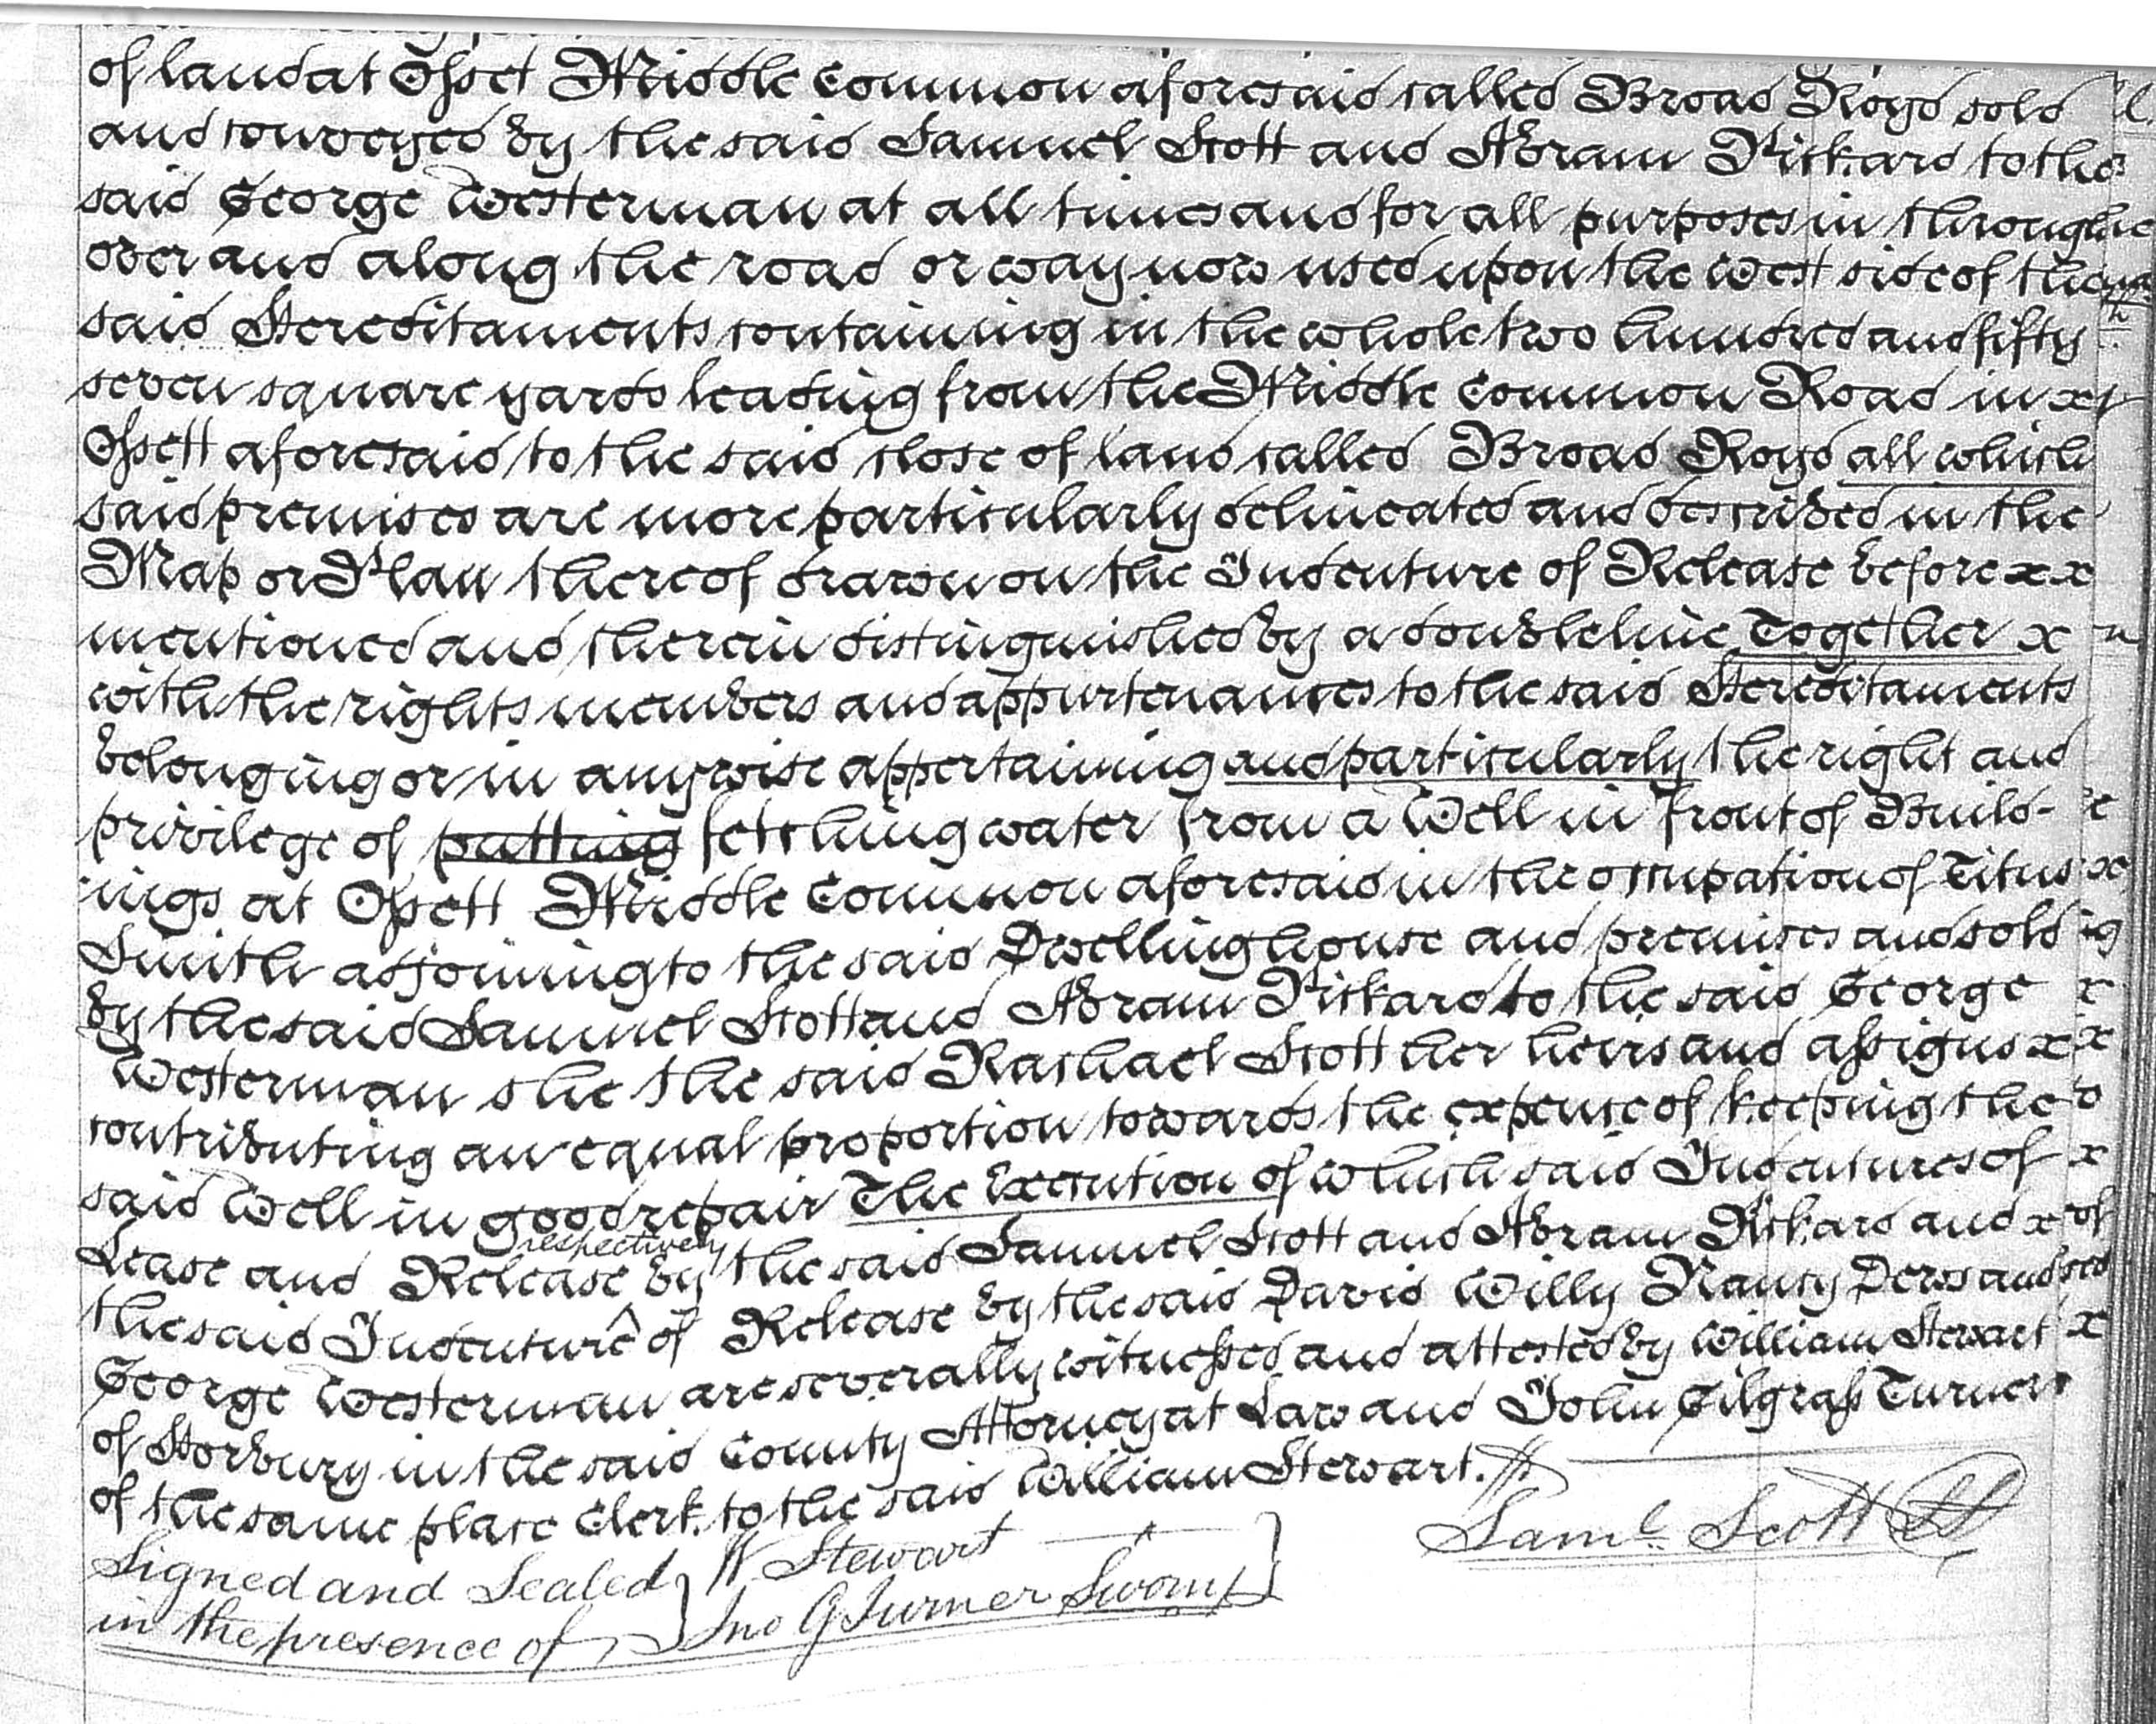 of land at Osset Middle Common aforesaid called Broad Royd sold
and conveyed by the said Samuel Scott and Abram Pickard to the
said George Westerman at all times and for all purposes in through
over and along the road or way now used upon the West side of the
said Hereditaments containing in the whole two hundred and fifty
seven square yards leading from the Middle Common Road in x
Ossett aforesaid to the said close of land called Broad Royd all which
said premises are more particularly delineated and described in the
Map or Plan thereof drawn on the Indenture of Release before x x
mentioned and therein distinguished by a double line Together x
with the rights members and appurtenances to the said Hereditaments
belonging or in anywise appertaining and particularly the right and
privilege of putting fetching water from a Well in front of Build-
ings at Ossett Middle Common aforesaid in the occupation of Titus
Smith adjoining to the said Dwellinghouse and premises and sold
by the said Samuel Scott and Abram Pickard to the said George
Westerman she the said Rachael Scott her heirs and assigns x
contributing an equal proportion towards the expense of keeping the
said Well in good repair The Execution of which said Indentures of
Lease and Release by respectively the said Samuel Scott and Abram Pickard and x
the said Indenture of Release by the said David Willy Nancy Dews and
George Westerman are severally witnessed and attested by William Stewart
of Horbury in the said County Attorney at Law and John Gilgrass Turner
of the same place Clerk to the said William Stewart.
Saml. Scott LS
Signed and Sealed
in the presence of
W Stewart
Jno G Turner Sworn